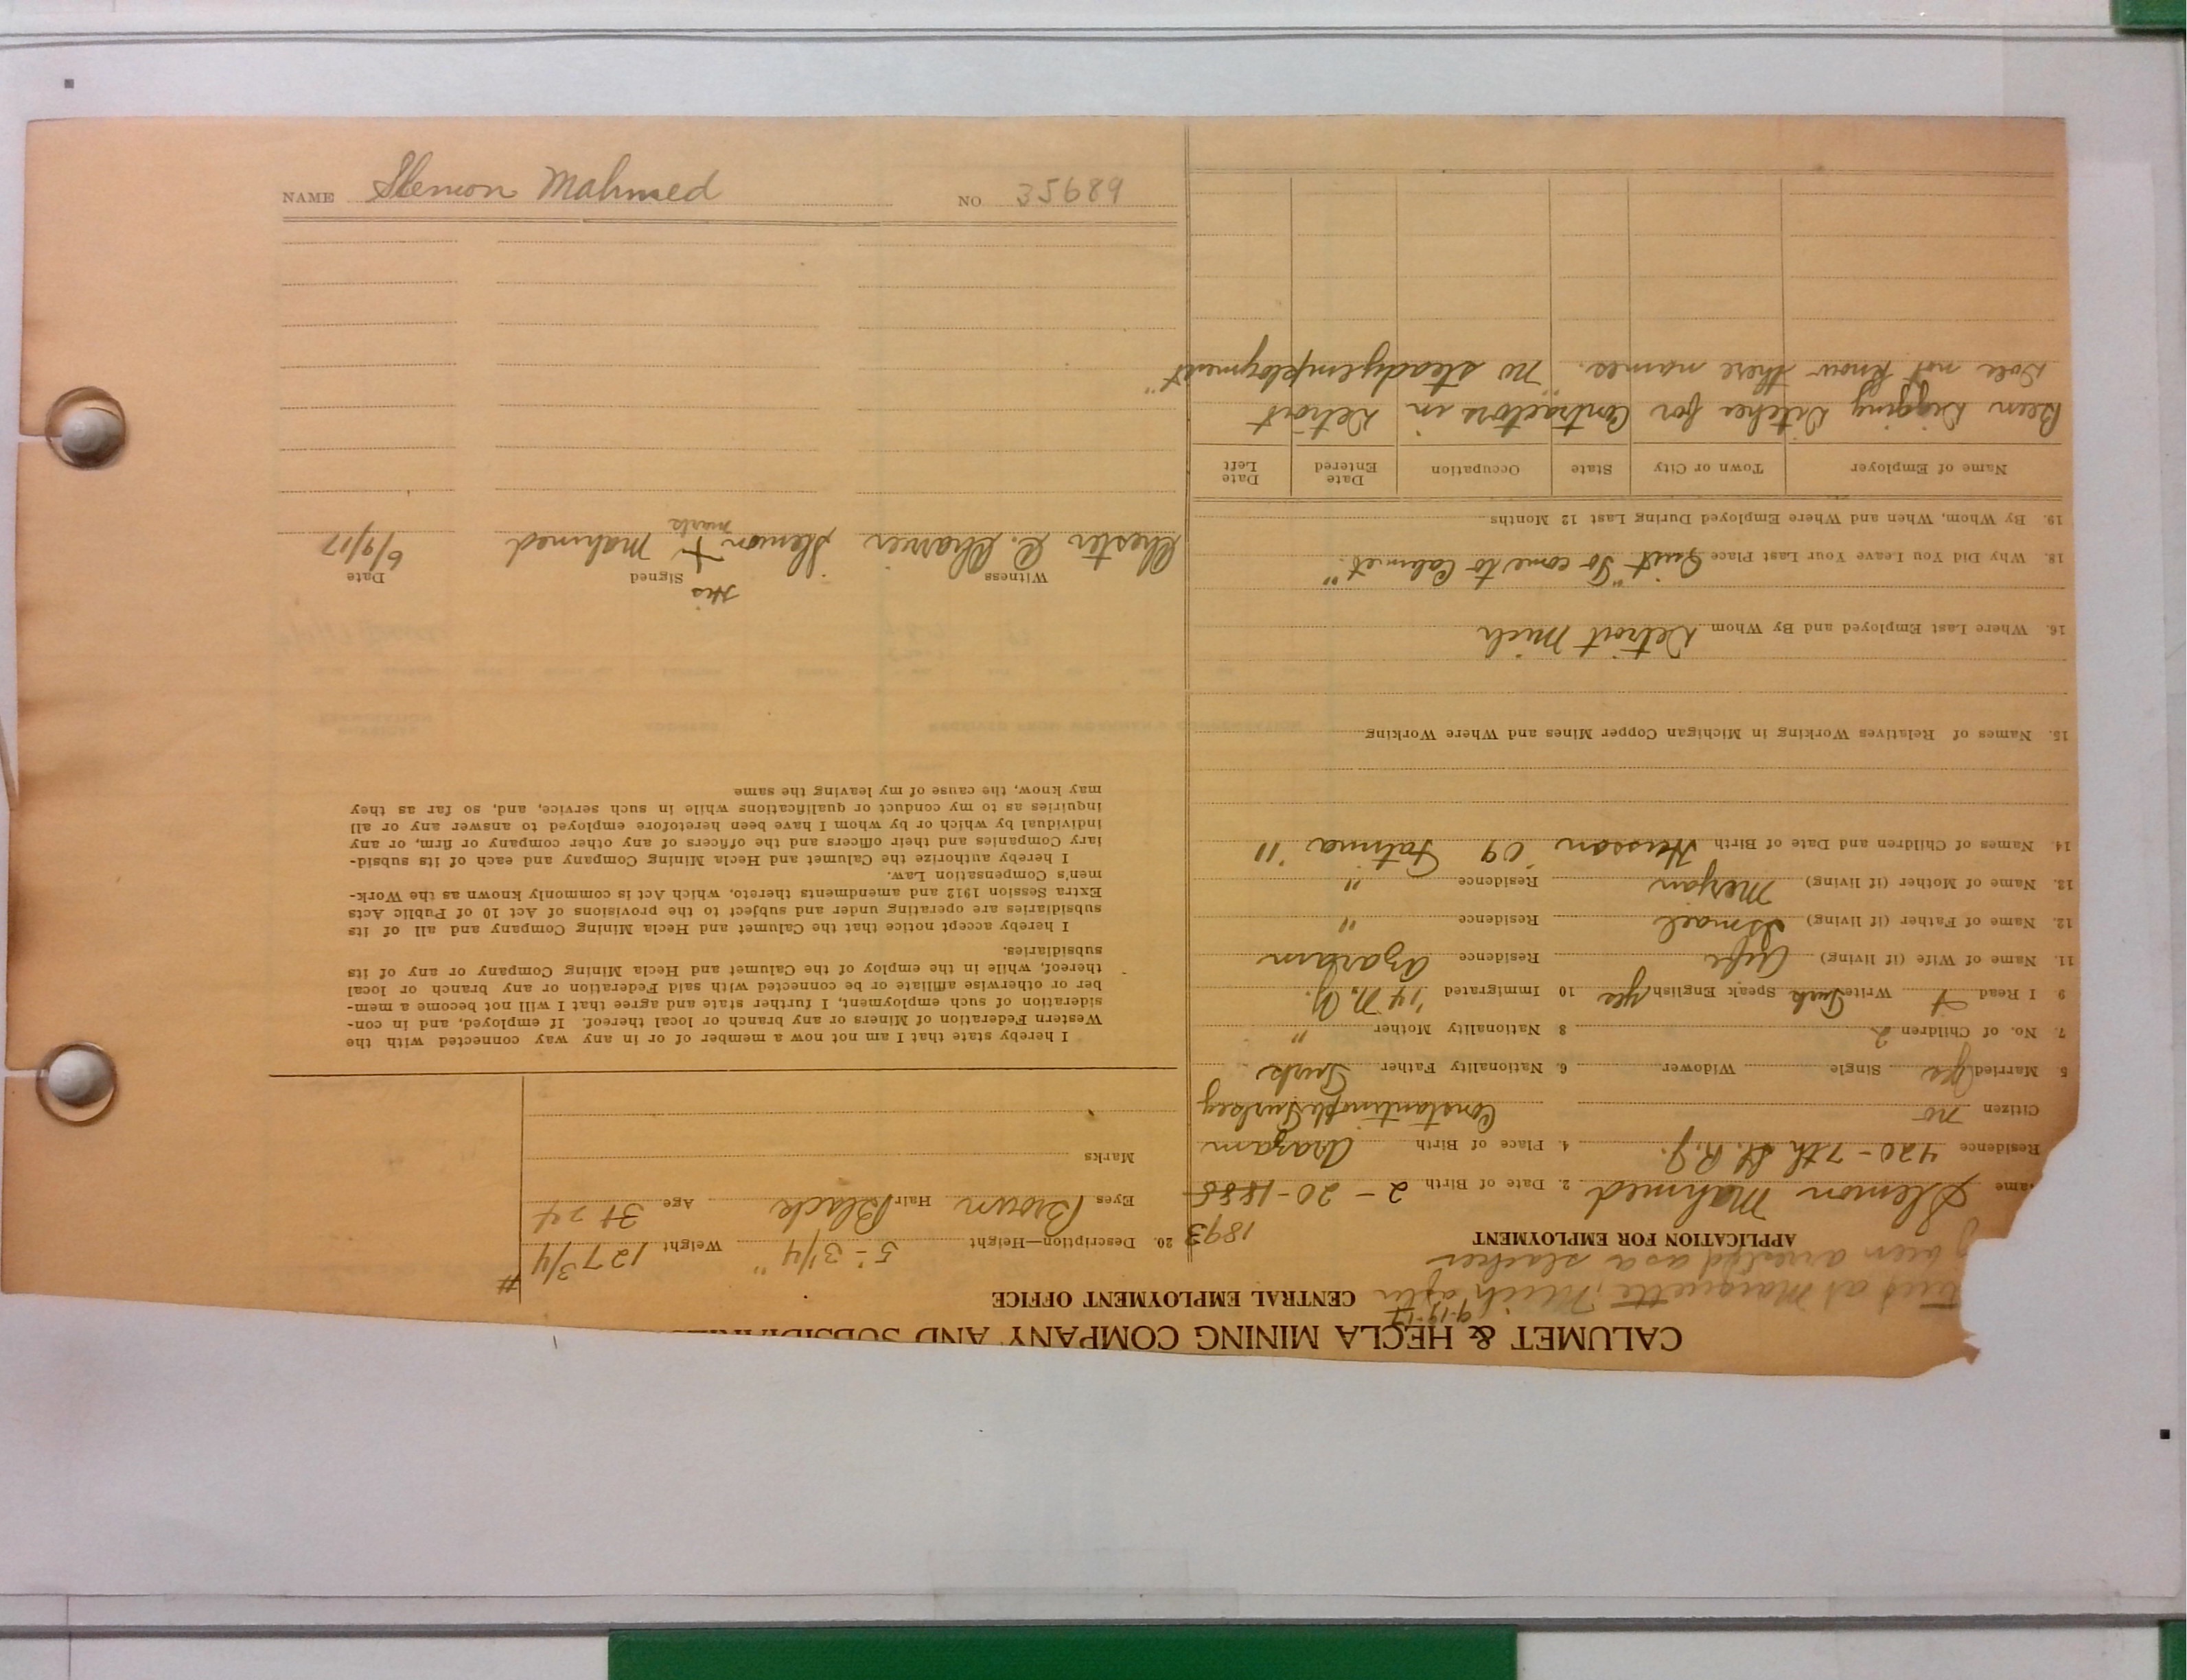 CALUMET & HECLA MINING COMPANY AND SUBSIDIARIES
CENTRAL EMPLOYMENT OFFICE
at Marquette, Mich after
9-19-17
been arrested as a slacker
APPLICATION FOR EMPLOYMENT
1893
ame Slemon Mahmed 2. Date of Birth 2-20-1888
Residence 420-7th St. R.J. 4. Place of Birth Arazam
Citizen no Constantinople Turkey
5 Married yes Single Widower 6. Nationality Father Turk
7. No. of Children 2 8 Nationality Mother "
9 I Read + Write Turk Speak English yes 10 Immigrated '14 N.Y.
11. Name of Wife (if living) Residence
12. Name of Father (if living) Ismael Residence "
13. Name of Mother (if living) Meryan Residence "
14. Names of Children and Date of Birth Hassan '09 Fatima '11
15. Names of Relatives Working in Michigan Copper Mines and Where Working
16. Where Last Employed and By Whom Detroit Mich
18. Why Did You Leave Your Last Place Quit "To come to Calumet."
19. By Whom, When and Where Employed During Last 12 Months
Name of Employer Town or City State Occupation Date Entered Date Left
Been Digging Ditches for Contractors in Detroit
Does not know there names. "no steady employment"
20. Description—Height 5'-3 1/4" Weight 127 3/4 #
Eyes Brown Hair Black Age 31 24
Marks
I hereby state that I am not now a member of or in any way connected with the
Western Federation of Miners or any branch or local thereof. If employed, and in con-
sideration of such employment, I further state and agree that I will not become a mem-
ber or otherwise affiliate or be connected with said Federation or any branch or local
thereof, while in the employ of the Calumet and Hecla Mining Company or any of its
subsidiaries.
I hereby accept notice that the Calumet and Hecla Mining Company and all of its
subsidiaries are operating under and subject to the provisions of Act 10 of Public Acts
Extra Session 1912 and amendments thereto, which Act is commonly known as the Work-
men's Compensation Law.
I hereby authorize the Calumet and Hecla Mining Company and each of its subsid-
iary Companies and their officers and the officers of any other company or firm, or any
individual by which or by whom I have been heretofore employed to answer any or all
inquiries as to my conduct or qualifications while in such service, and, so far as they
may know, the cause of my leaving the same
His
Witness Signed Date
Chester C. Slemon + Mahmed 6/9/17
mark
NAME Slemon Mahmed NO 35689